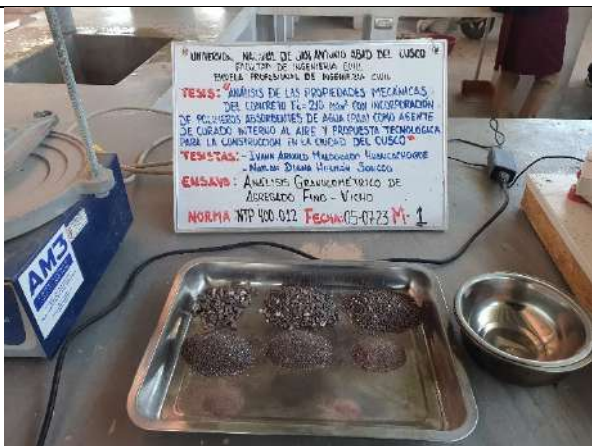 " UNIVERSIDAD NACIONAL DE SAN ANTONIO ABAD DEL CUSCO
FACULTAD DE INGENIERIA CIVIL
ESCUELA PROFESIONAL DE INGENIERIA CIVIL
TESIS: "ANÁLISIS DE LAS PROPIEDADES MECÁNICAS
DEL CONCRETO F'c=210 CON INCORPORACIÓN
DE POLÍMEROS ABSORBENTES DE AGUA (PAA) COMO AGENTE
DE CURADO INTERNO AL AIRE Y PROPUESTA TECNOLÓGICA
PARA LA CONSTRUCCIÓN EN LA CIUDAD DEL CUSCO"
TESISTAS: - MALDONADO
- DIANA HUAMÁN
ENSAYO: ANÁLISIS GRANULOMÉTRICO DE
AGREGADO FINO - VICHO
NORMA NTP 400.012 FECHA: 05-0723 M- 1
AM3